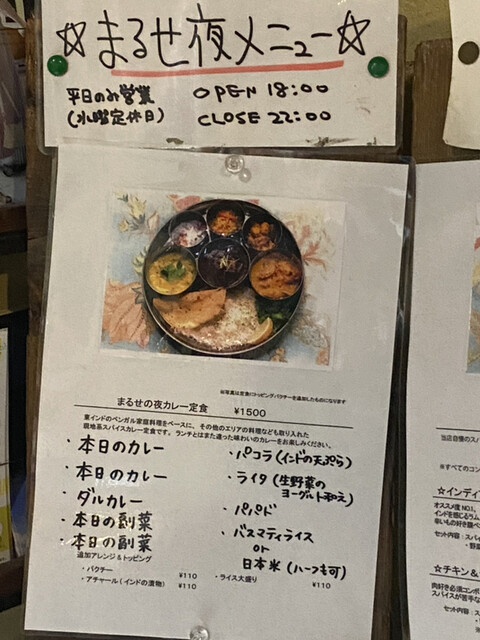 ☆まるせ夜メニュー☆
平日のみ営業 OPEN 18:00
(水曜定休日) CLOSE 22:00
※写真は定食にトッピングパクチーを追加したものになります
まるせの夜カレー定食 ¥1500
東インドのベンガル家庭料理をベースに、その他のエリアの料理なども取り入れた
現地系スパイスカレー定食です。ランチとはまた違った味わいのカレーをお楽しみください。
・本日のカレー
・本日のカレー
・ダルカレー
・本日の副菜
・本日の副菜
・パコラ(インドの天ぷら)
・ライタ(生野菜の
ヨーグルト和え)
・パパド
・バスマティライス
or
日本米(ハーフも可)
追加アレンジ&トッピング
・パクチー ¥110
・アチャール(インドの漬物) ¥110
・ライス大盛り ¥110
当店自慢のスパ
※すべてのコン
☆インディ
オススメ度NO.1。
インドを感じるラム
辛いもの好き
セット内容:スパイ
・野菜
☆チキン&
肉好き必須コンボ
スパイスが苦手な
セット内容:スパ